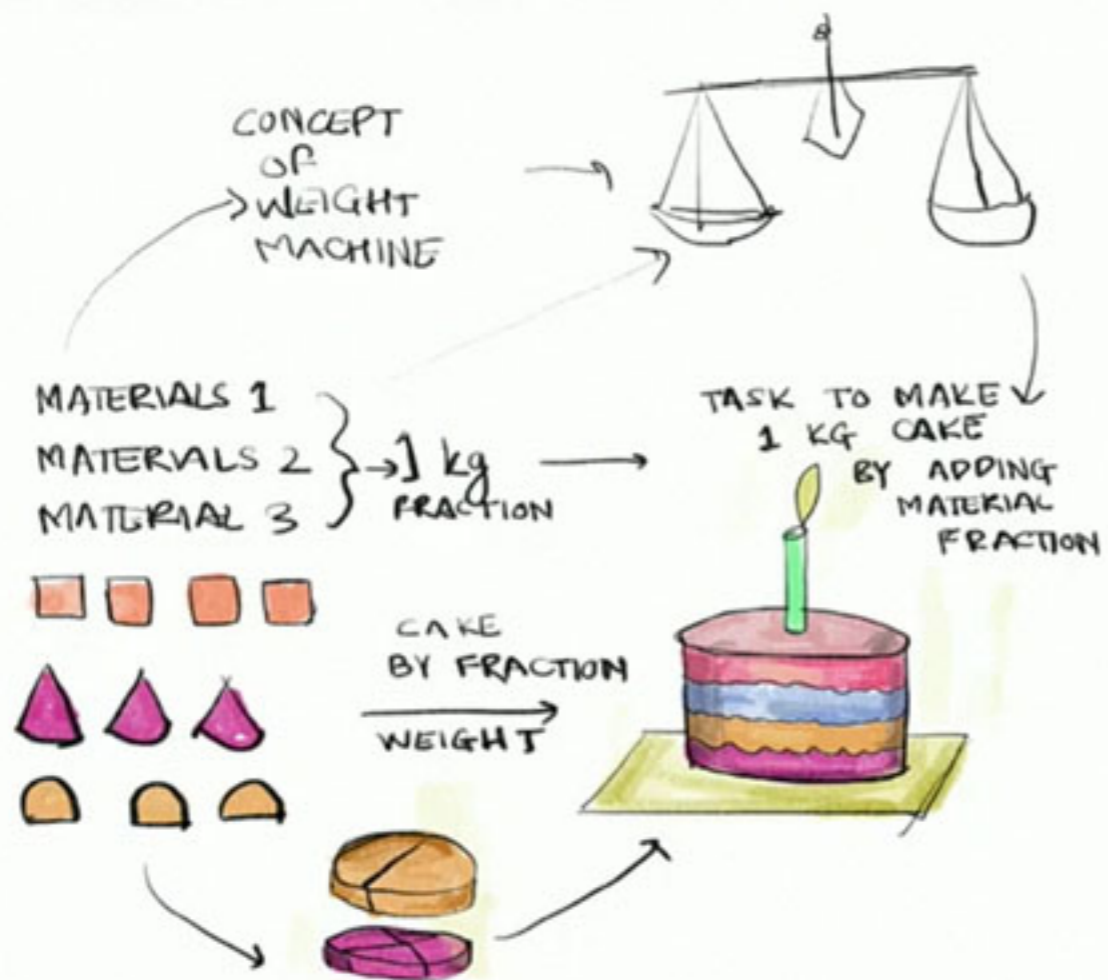 CONCEPT
OF
WEIGHT
MACHINE
MATERIALS 1
MATERIALS 2
MATERIAL 3
1 kg
FRACTION
TASK TO MAKE
1 KG CAKE
BY ADDING
MATERIAL
FRACTION
CAKE
BY FRACTION
WEIGHT